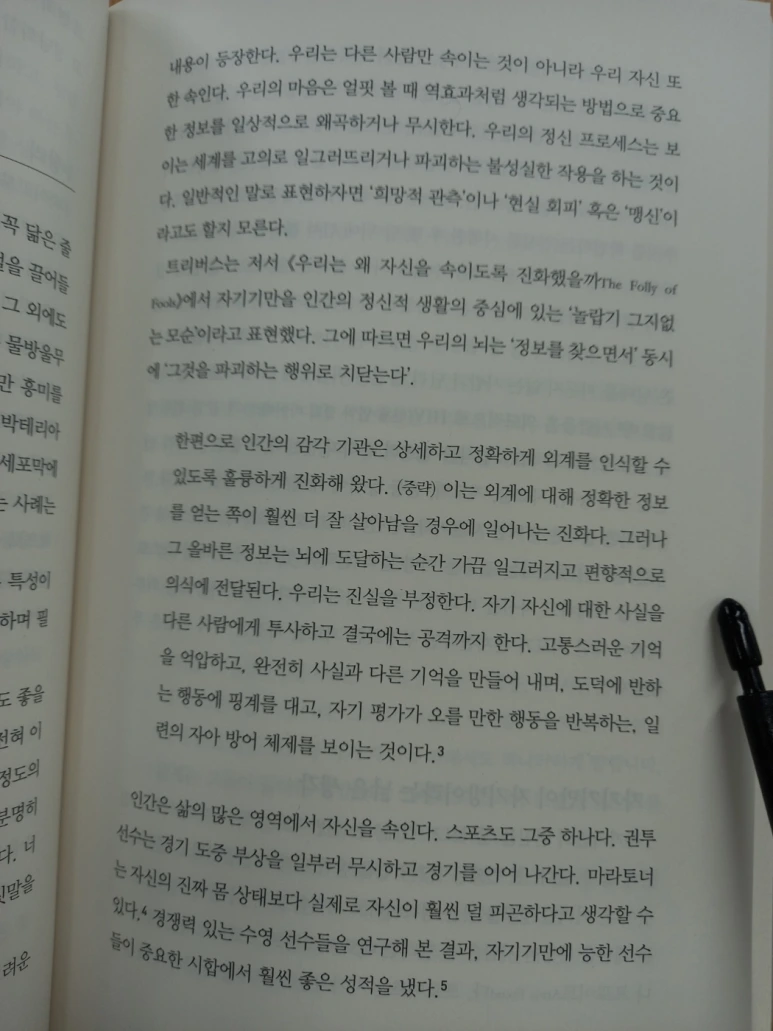 꼭 닮은 줄
을 끌어들
그 외에도
물방울무
만 흥미를
박테리아
세포막에
는 사례는
특성이
하며 필
도 좋을
전혀 이
정도의
분명히
다. 너
짓말을
려운
내용이 등장한다. 우리는 다른 사람만 속이는 것이 아니라 우리 자신 또
한 속인다. 우리의 마음은 얼핏 볼 때 역효과처럼 생각되는 방법으로 중요
한 정보를 일상적으로 왜곡하거나 무시한다. 우리의 정신 프로세스는 보
이는 세계를 고의로 일그러뜨리거나 파괴하는 불성실한 작용을 하는 것이
다. 일반적인 말로 표현하자면 ‘희망적 관측’이나 ‘현실 회피’ 혹은 ‘맹신’이
라고도 할지 모른다.
트리버스는 저서 《우리는 왜 자신을 속이도록 진화했을까The Folly of
Fools》에서 자기기만을 인간의 정신적 생활의 중심에 있는 ‘놀랍기 그지없
는 모순’이라고 표현했다. 그에 따르면 우리의 뇌는 ‘정보를 찾으면서’ 동시
에 ‘그것을 파괴하는 행위로 치닫는다’.
한편으로 인간의 감각 기관은 상세하고 정확하게 외계를 인식할 수
있도록 훌륭하게 진화해 왔다. (중략) 이는 외계에 대해 정확한 정보
를 얻는 쪽이 훨씬 더 잘 살아남을 경우에 일어나는 진화다. 그러나
그 올바른 정보는 뇌에 도달하는 순간 가끔 일그러지고 편향적으로
의식에 전달된다. 우리는 진실을 부정한다. 자기 자신에 대한 사실을
다른 사람에게 투사하고 결국에는 공격까지 한다. 고통스러운 기억
을 억압하고, 완전히 사실과 다른 기억을 만들어 내며, 도덕에 반하
는 행동에 핑계를 대고, 자기 평가가 오를 만한 행동을 반복하는, 일
련의 자아 방어 체제를 보이는 것이다.3
인간은 삶의 많은 영역에서 자신을 속인다. 스포츠도 그중 하나다. 권투
선수는 경기 도중 부상을 일부러 무시하고 경기를 이어 나간다. 마라토너
는 자신의 진짜 몸 상태보다 실제로 자신이 훨씬 덜 피곤하다고 생각할 수
있다.4 경쟁력 있는 수영 선수들을 연구해 본 결과, 자기기만에 능한 선수
들이 중요한 시합에서 훨씬 좋은 성적을 냈다.5